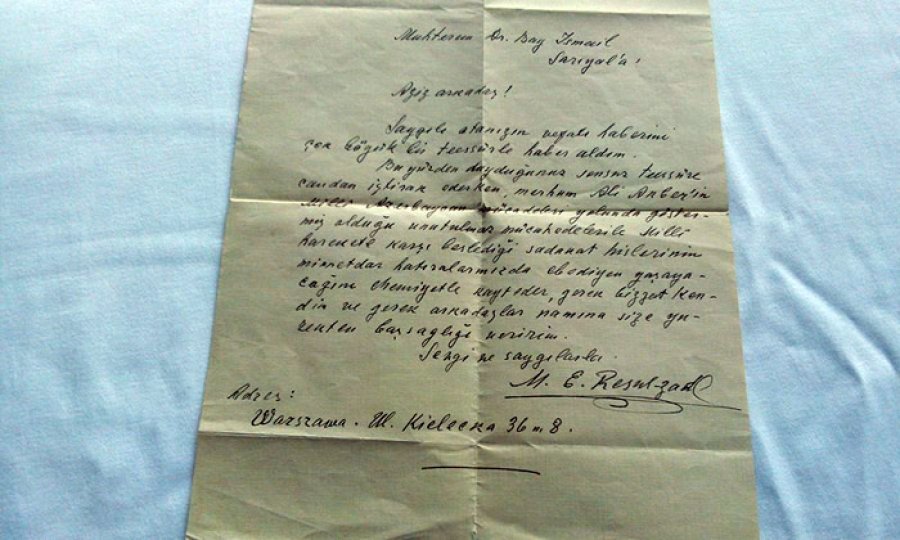 Muhterem Dr. Bay Ismail
Sarıyal'a!
Aziz arkadaş!
Saygılı atanızın vefatı haberini
çok böyük bir teessürle haber aldım.
Bu yüzden duyduğunuz sonsuz teessüre
candan iştirak ederken, merhum Ali Anbey'in
Milli Azerbaycan mücadelesi yolunda göster-
miş olduğu unutulmaz mücahedelerile Milli
harekete karşı beslediği sadakat hislerinin
minnetdar hatıralarımızda ebediyen yaşaya-
cağını ehemiyetle kayteder, gerek bizzat ken-
dim ve gerek arkadaşlar namına size yü-
rekten başsağlığı veririm.
Sevgi ve saygılarla.
M. E. Resul-zade
Adres:
Warszawa. Ul. Kielecka 36 m 8.